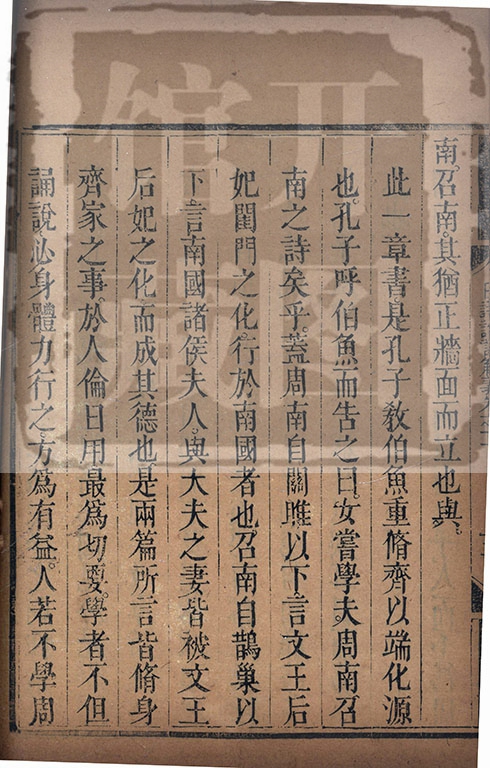 南召南其猶正牆面而立也與
此一章書是孔子教伯魚重脩齊以端化源
也孔子呼伯魚而告之曰女嘗學夫周南召
南之詩矣乎蓋周南自關雎以下言文王后
妃閨門之化行於南國者也召南自鵲巢以
下言南國諸侯夫人與大夫之妻皆被文王
后妃之化而成其德也是兩篇所言皆脩身
齊家之事於人倫日用最為切要學者不但
誦說必身體力行之方為有益人若不學周